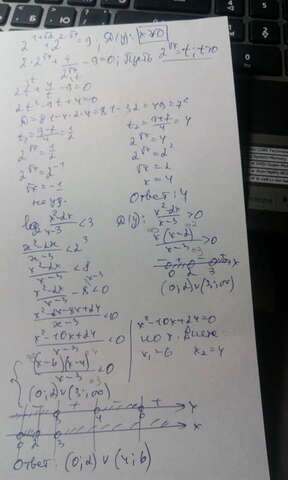 2^{1+√x} + 2^{2-√x} = 9, D(y): x≥0
2·2^{√x} + 4/2^{√x} - 9 = 0; Пусть 2^{√x} = t, t>0
2t + 4/t - 9 = 0
2t² - 9t + 4 = 0
D = 81 - 4·2·4 = 81 - 32 = 49 = 7²
t₁ = (9-7)/4 = 1/2
t₂ = (9+7)/4 = 4
2^{√x} = 1/2
2^{√x} = 2^{-1}
√x = -1
2^{√x} = 4
2^{√x} = 2²
√x = 2
x = 4
Ответ: 4
(x²-2x)/(x-3) < 3
D(y): (x²-2x)/(x-3) > 0
(x²-2x)/(x-3) < 2³
x(x-2)/(x-3) > 0
(x²-2x)/(x-3) < 8
0 2 3 x
(x²-2x)/(x-3) - 8 < 0
(0;2)∪(3;∞)
(x²-2x-8x+24)/(x-3) < 0
(x²-10x+24)/(x-3) < 0
x²-10x+24=0
по т. Виета
x₁=6 x₂=4
(x-6)(x-4)/(x-3) < 0
(0;2)∪(3;∞)
3 4 6 x
0 2 3 x
Ответ: (0;2)∪(4;6)